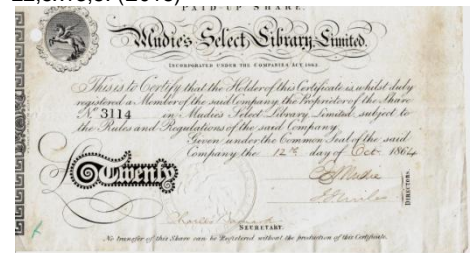 PAID-UP SHARE.
Mudie's Select Library Limited.
INCORPORATED UNDER THE COMPANIES ACT, 1862.
This is to Certify that the Holder of this Certificate is, whilst duly
registered a Member of the said Company, the Proprietor of the Share
No. 3114 in Mudie's Select Library Limited, subject to
the Rules and Regulations of the said Company.
Given under the Common Seal of the said
Company the 12th day of Oct. 1864
Twenty
DIRECTORS.
SECRETARY.
No transfer of this Share can be Registered without the production of this Certificate.